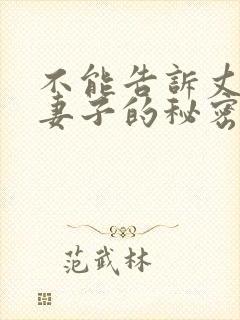 不能告訴丈
妻子的秘密
范武林